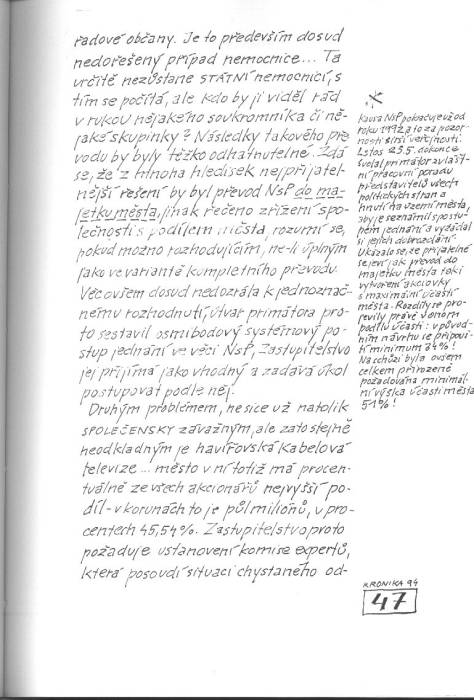 řadové občany. Je to především dosud
nedořešený případ nemocnice... Ta
určitě nezůstane STÁTNÍ nemocnicí, s
tím se počítá, ale kdo by ji viděl rád
v rukou nějakého soukromníka či ně-
jaké skupinky? Následky takového pře
vodu by byly těžko odhatnutelné. Zdá
se, že z mnoha hledisek nejpřijatel-
nější řešení by byl převod NsP do ma-
jetku města, jinak řečeno zřízení spo-
lečnosti s podílem města, rozumí se,
pokud možno rozhodujícím, ne-li úplným
jako ve variantě kompletního převodu.
Věc ovšem dosud nedozrála k jednoznač-
nému rozhodnutí, útvar primátora pro-
to sestavil osmibodový systémový po-
stup jednání ve věci NsP, Zastupitelstvo
jej přijímá jako vhodný a zadává úkol
postupovat podle něj.
Druhým problémem, ne sice už natolik
SPOLEČENSKY závažným, ale zato stejně
neodkladným je havířovská Kabelová
televize... město v ní totiž má procen-
tuálně ze všech akcionářů nejvyšší po-
díl - v korunách to je půl milionů, v pro-
centech 45,54%. Zastupitelstvo proto
požaduje ustanovení komise expertů,
která posoudí situaci chystaného od-
Kausa NsP pokračuje už od
roku 1992 a to za pozor-
nosti širší veřejnosti.
Letos 25.5. dokonce
svolal primátor zvlášt-
ní pracovní poradu
představitelů všech
politických stran a
hnutí na území města,
aby je seznámil s postu-
pem jednání a vyžádal
si jejich dobrozdání.
Ukázalo se, že přijatelné
se jeví jak převod do
majetku města tak i
vytvoření akciovky
s maximální účastí
města. Rozdíly se pro-
jevily právě v onom
podílu účasti: v původ-
ním návrhu se připouš-
tí minimum 34%!
Na schůzi byla ovšem
celkem přirozeně
požadována minimál-
ní výška účasti města
51%!
KRONIKA 94
47